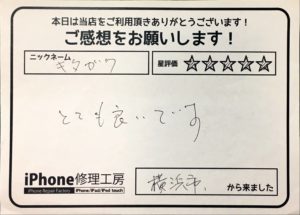 本日は当店をご利用頂きありがとうございます!
ご感想をお願いします!
ニックネーム
キタガワ
星評価 ☆☆☆☆☆
とても良いです
iPhone修理工房
iPhone Repair Factory iPhone/iPad/iPod touch
横浜市、 から来ました